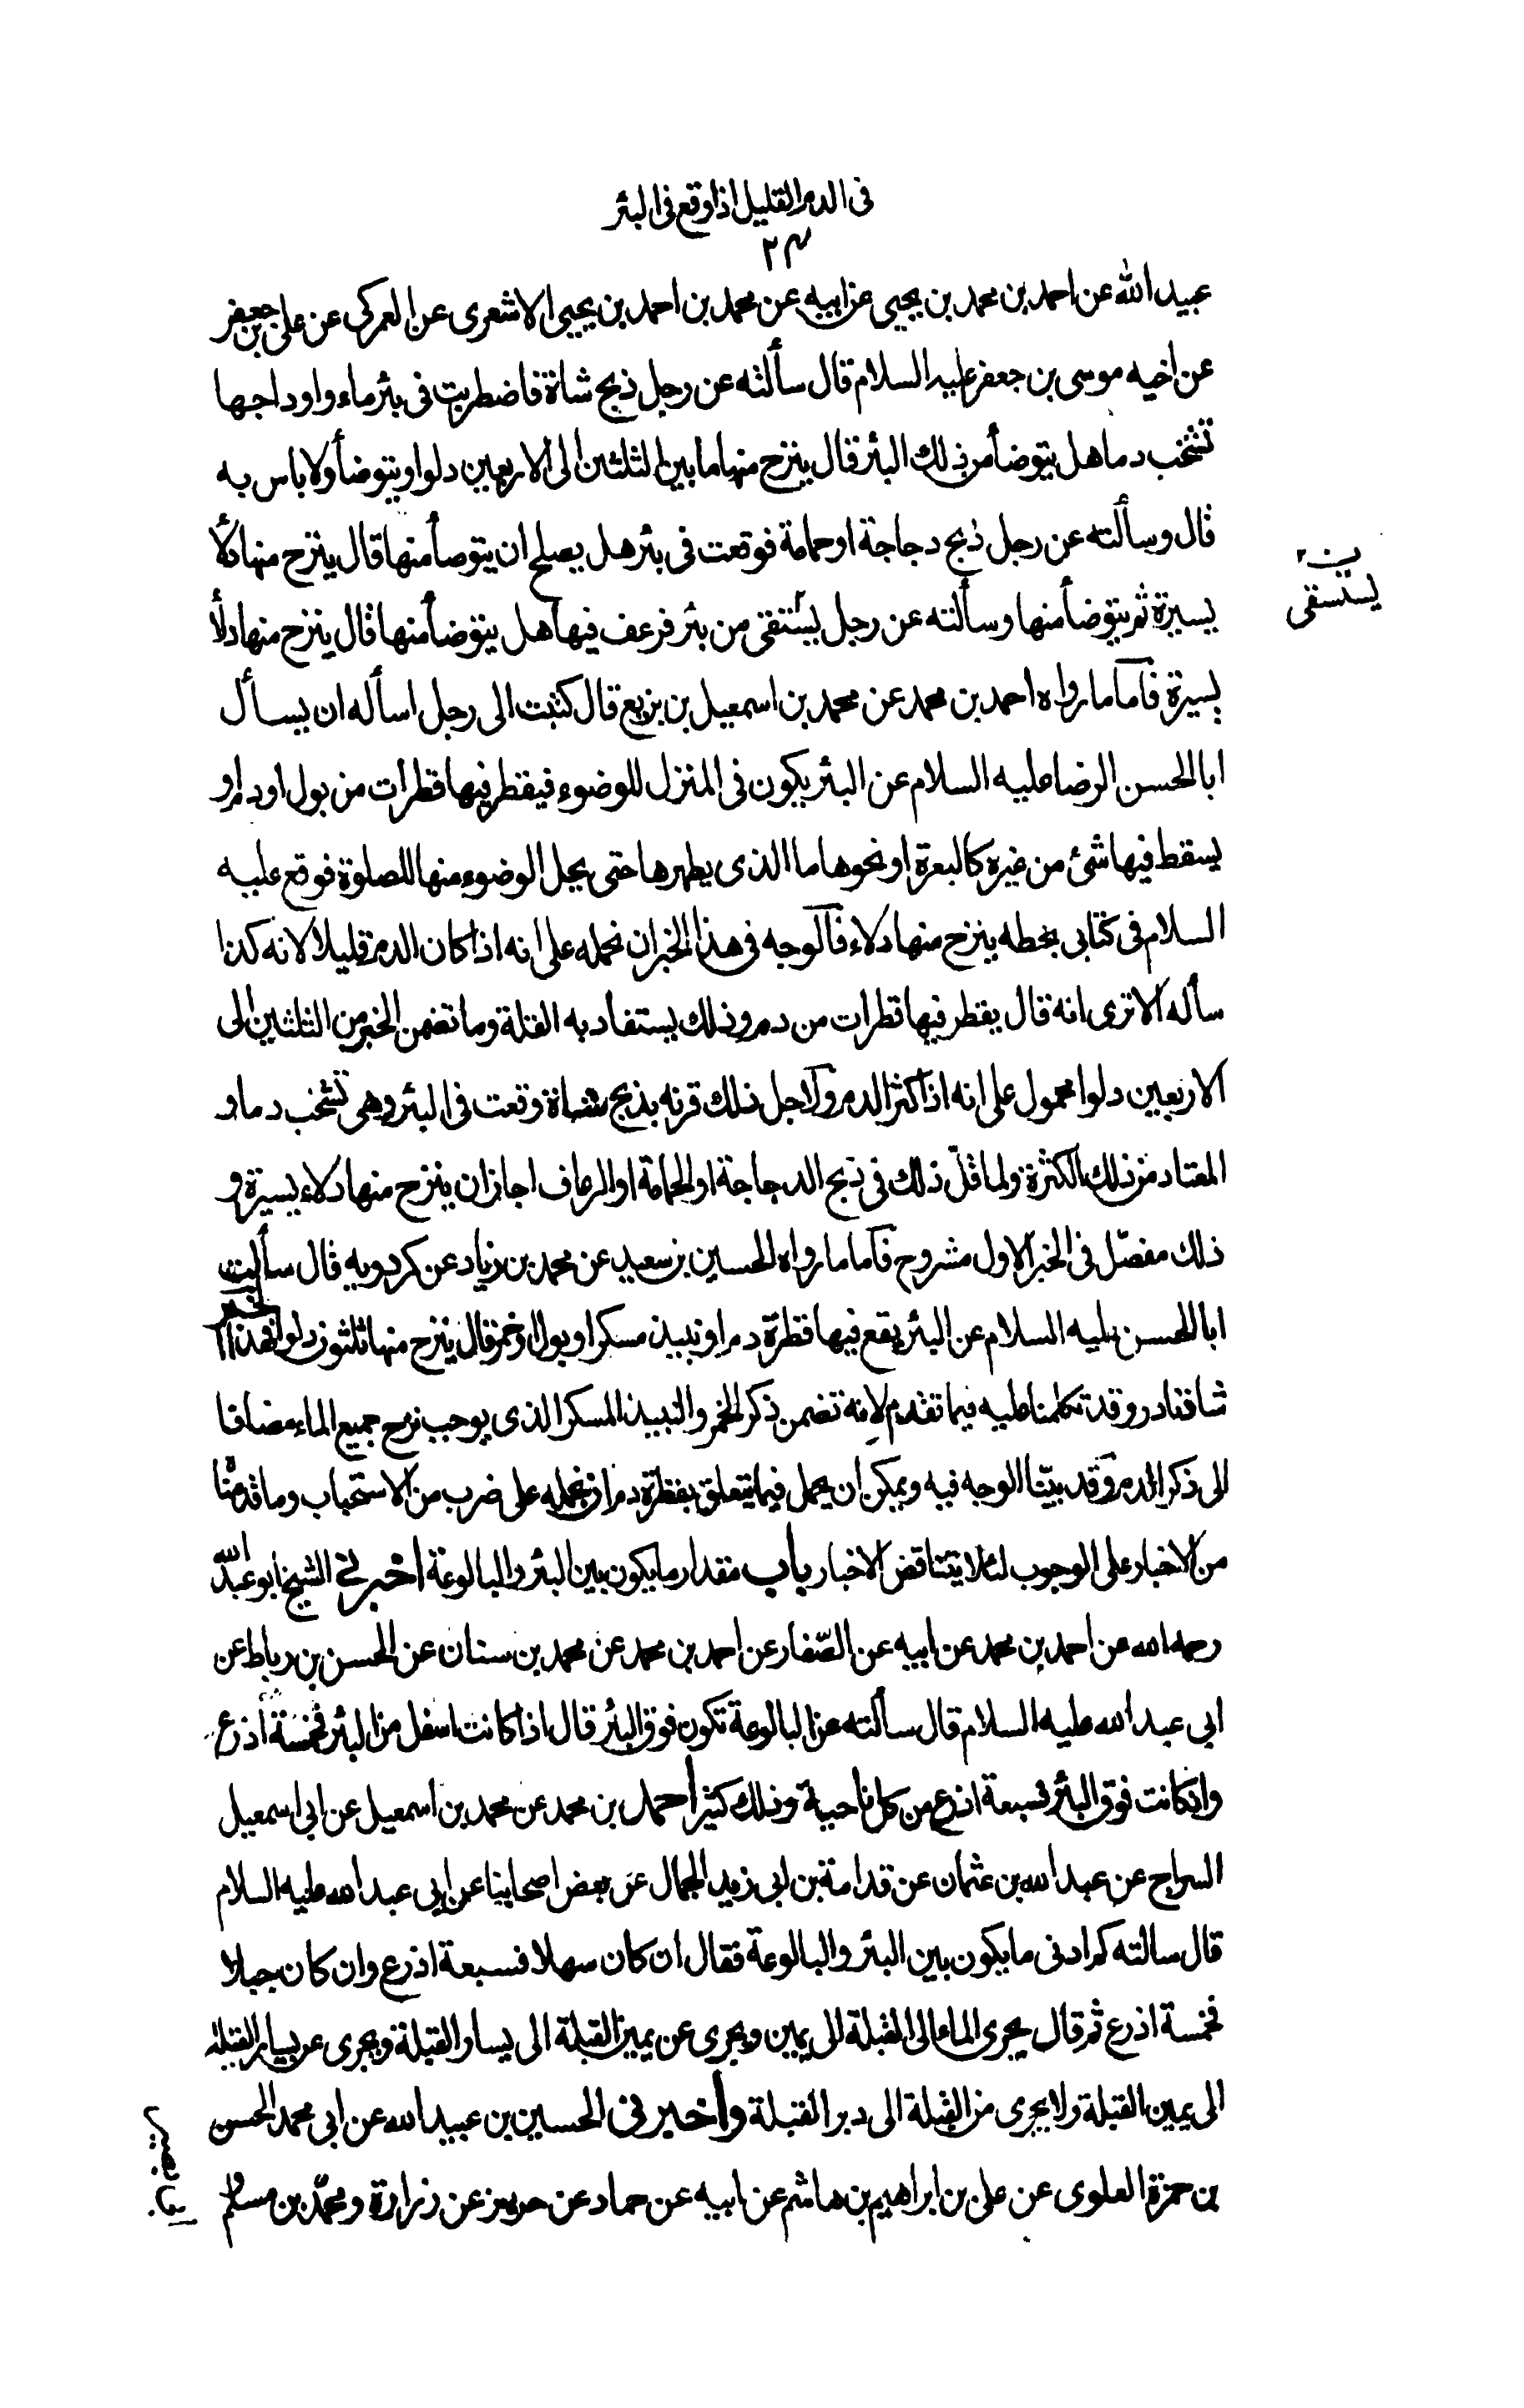 فى الدم القليل اذا وقع فى البئر
٢٣
عبيد الله عن احمد بن محمد بن يحيى عن ابيه عن محمد بن احمد بن يحيى الاشعرى عن العمركى عن على بن جعفر
عن اخيه موسى بن جعفر عليه السلام قال سألته عن رجل ذبح شاة فاضطربت فى بئر ماء واوداجها
تشخب دما هل يتوضأ من ذلك البئر قال ينزح منها ما بين الثلثين الى الاربعين دلوا ويتوضأ ولا باس به
قال وسألته عن رجل ذبح دجاجة او حمامة فوقعت فى بئر هل يصلح ان يتوضأ منها قال ينزح منها دلاء
يسيرة ثم يتوضأ منها وسألته عن رجل يستقى من بئر فرعف فيها هل يتوضأ منها قال ينزح منها دلاء
يستسقى
يسيرة فاما ما رواه احمد بن محمد عن محمد بن اسمعيل بن بزيع قال كتبت الى رجل اسأله ان يسأل
ابا الحسن الرضا عليه السلام عن البئر يكون فى المنزل للوضوء فيقطر فيها قطرات من بول او دم او
يسقط فيها شئ من غيره كالبعرة او نحوها ما الذى يطهرها حتى يحل الوضوء منها للصلوة فوقع عليه
السلام فى كتابى بخطه ينزح منها دلاء فالوجه فى هذا الخبر ان نحمله على انه اذا كان الدم قليلا لانه كذا
سأله الا ترى انه قال يقطر فيها قطرات من دم وذلك يستفاد به القلة وما تضمن الخبر من الثلثين الى
الاربعين دلوا محمول على انه اذا كثر الدم ولاجل ذلك قرنه بذبح شاة وقعت فى البئر وهى تشخب دما و
المعتاد من ذلك الكثرة ولما قلّ ذلك فى ذبح الدجاجة او الحمامة او الرعاف اجاز ان ينزح منها دلاء يسيرة و
ذلك مفصّل فى الخبر الاول مشروح فاما ما رواه الحسين بن سعيد عن محمد بن زياد عن كردويه قال سألت
ابا الحسن عليه السلام عن البئر يقع فيها قطرة دم او نبيذ مسكر او بول او خمر قال ينزح منها ثلثون دلوا فهذا الخبر
شاذ نادر وقد تكلمنا عليه فيما تقدم لانه تضمن ذكر الخمر والنبيذ المسكر الذى يوجب نزح جميع الماء مضافا
الى ذكر الدم وقد بيّنا الوجه فيه ويمكن ان يحمل فيما يتعلق بقطرة دم ان نحمله على ضرب من الاستحباب وما قدمنا
من الاخبار على الوجوب لئلا يتناقض الاخبار باب مقدار ما يكون بين البئر والبالوعة اخبرنى الشيخ ابو عبد الله
رحمه الله عن احمد بن محمد عن ابيه عن الصّفار عن احمد بن محمد عن محمد بن سنان عن الحسن بن رباط عن
ابى عبد الله عليه السلام قال سألته عن البالوعة تكون فوق البئر قال اذا كانت اسفل من البئر فخمسة اذرع
وان كانت فوق البئر فسبعة اذرع من كل ناحية وذلك كثير احمد بن محمد عن محمد بن اسمعيل عن ابى اسمعيل
السراج عن عبد الله بن عثمان عن قدامة بن ابى زيد الجمال عن بعض اصحابنا عن ابى عبد الله عليه السلام
قال سالته كم ادنى ما يكون بين البئر والبالوعة فقال ان كان سهلا فسبعة اذرع وان كان جبلا
فخمسة اذرع ثم قال يجرى الماء الى القبلة الى يمين ويجرى عن يمين القبلة الى يسار القبلة ويجرى عن يسار القبلة
الى يمين القبلة ولا يجرى من القبلة الى دبر القبلة واخبرنى الحسين بن عبيد الله عن ابى محمد الحسن
بن حمزة العلوى عن على بن ابراهيم بن هاشم عن ابيه عن حماد عن حريز عن زرارة ومحمّد بن مسلم